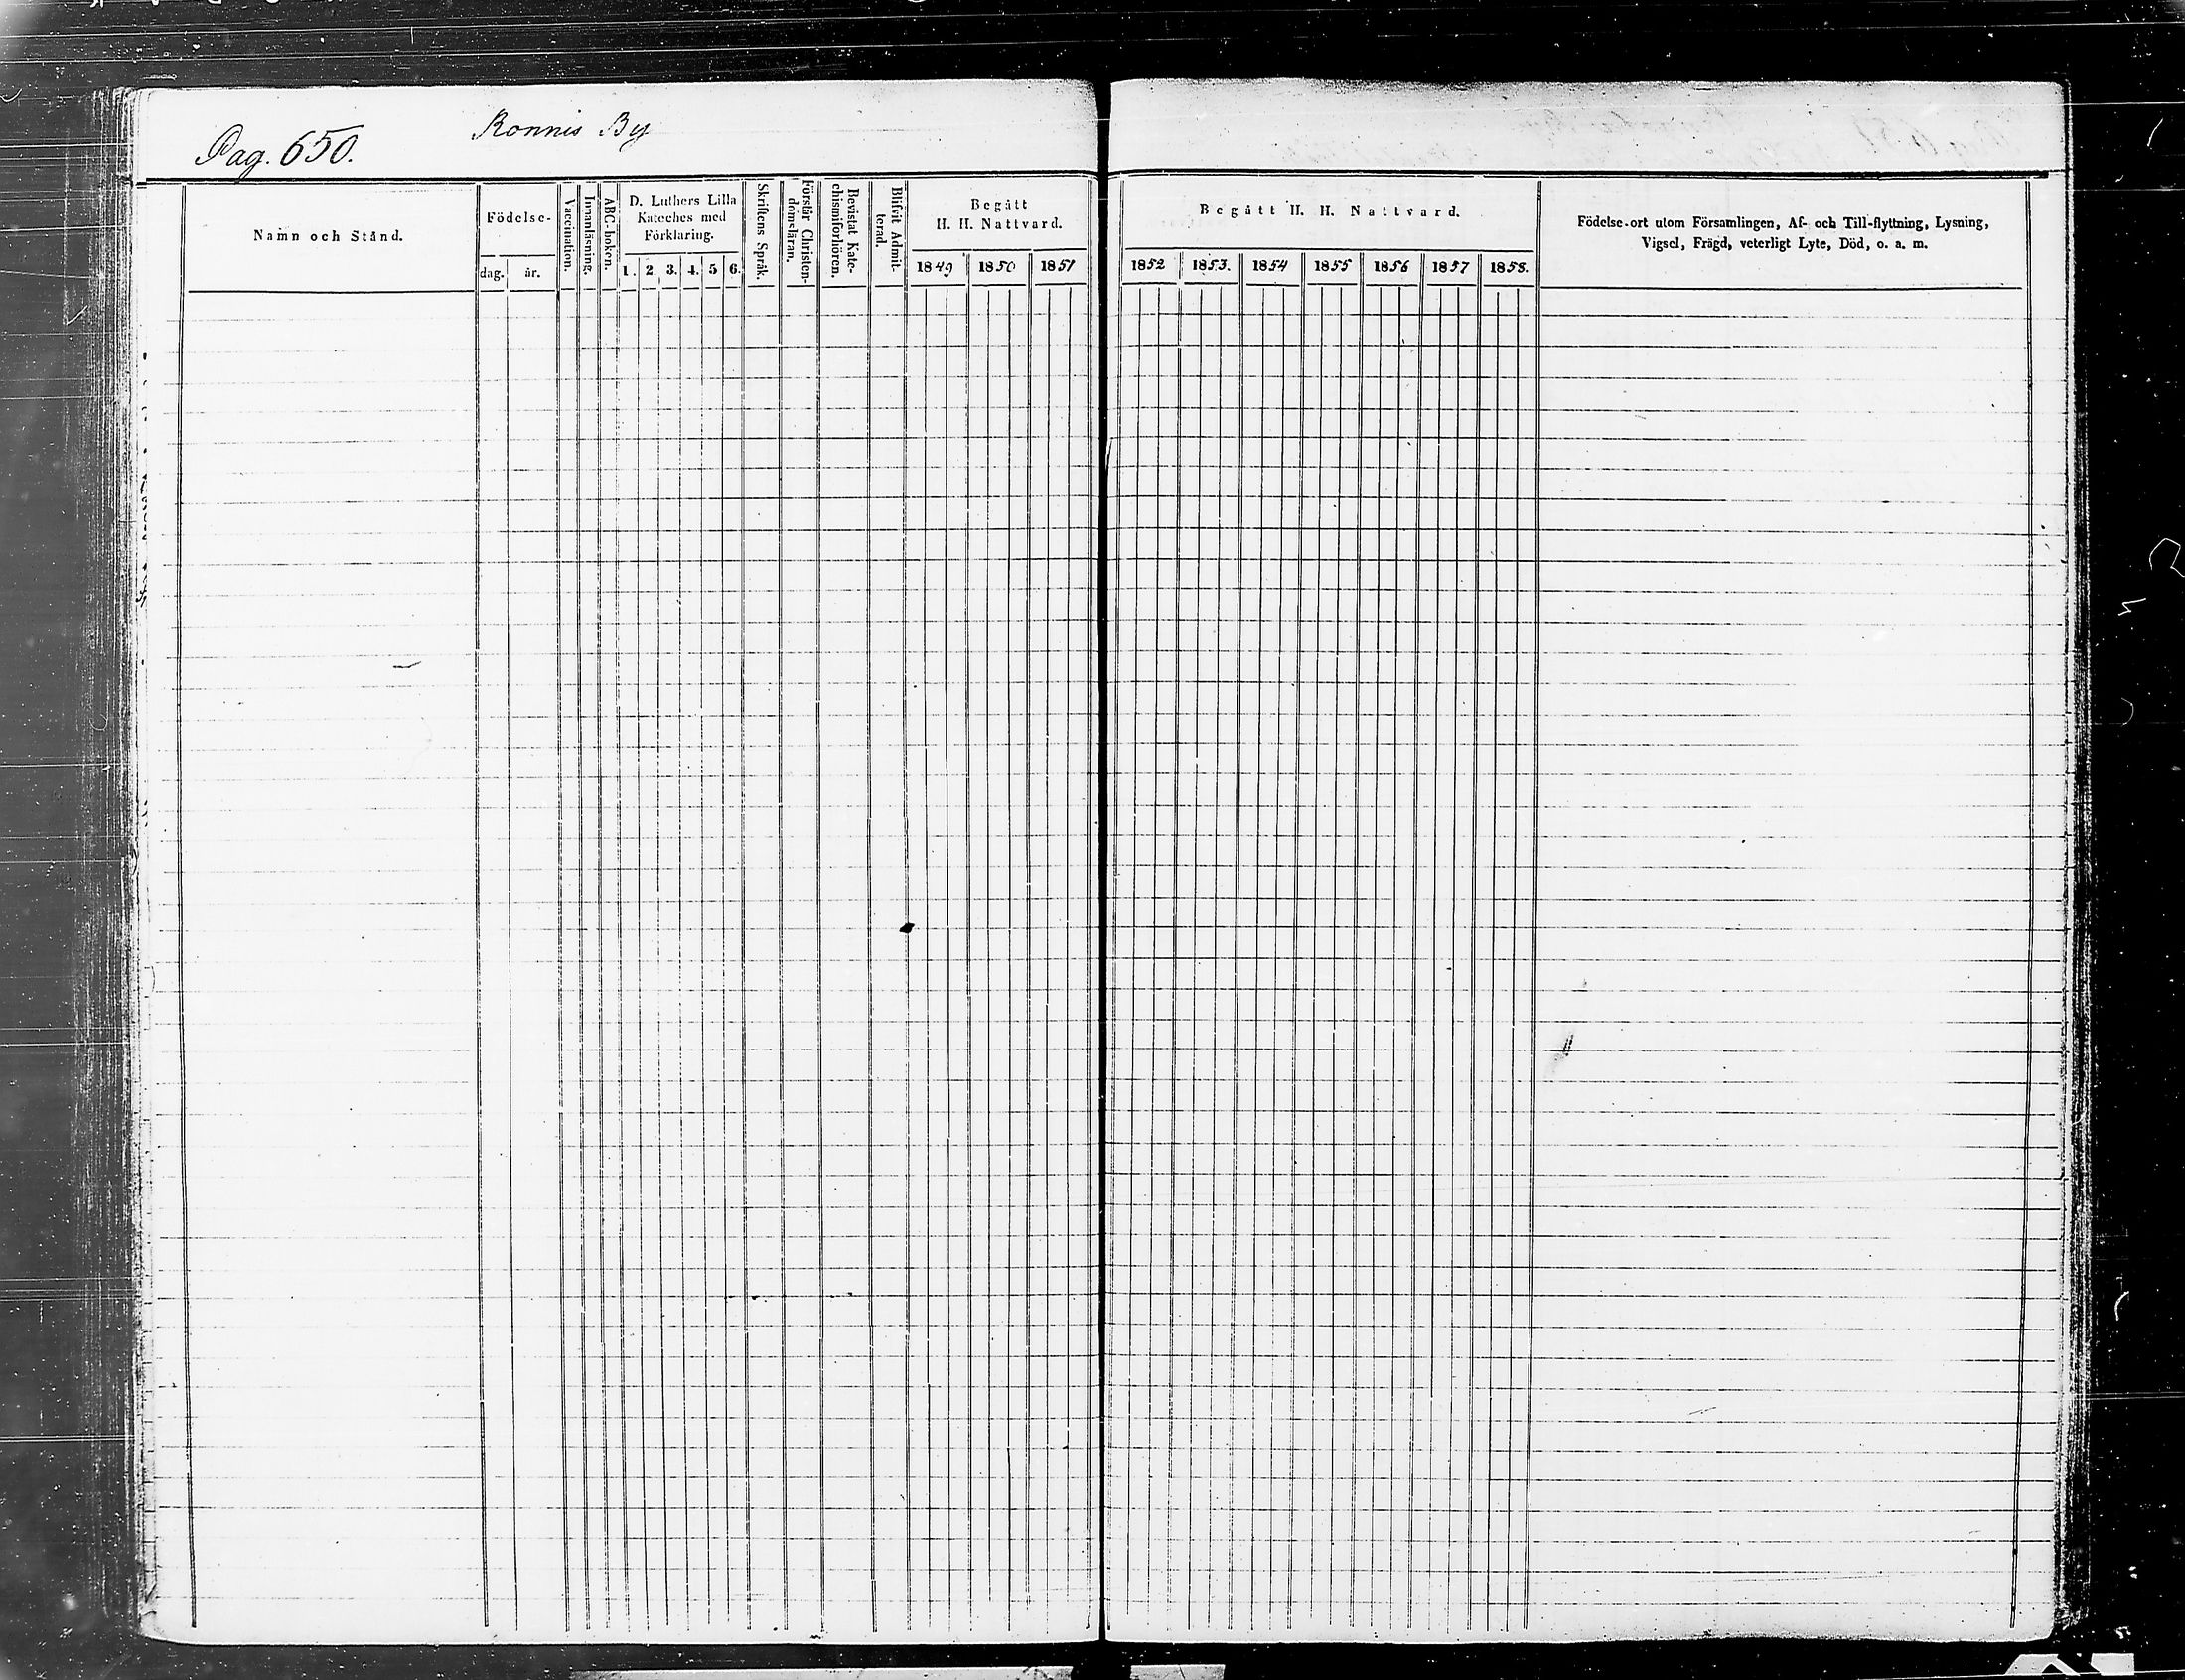 Pag. 650.
Ronnis By
Namn och Stånd.
Födelse-
dag.
år.
Vaccination.
Innanläsning.
ABC-boken.
D. Luthers Lilla
Kateches med
Förklaring.
1. 2. 3. 4. 5 6.
Skriftens Språk.
Förstår Christen-
domsläran.
Bevistat Kate-
chismiförhören.
Blifvit Admit-
terad.
Begått
H. H. Nattvard.
1849 1850 1851
Begått H. H. Nattvard.
1852 1853. 1854 1855 1856 1857 1858.
Födelse-ort utom Församlingen, Af- och Till-flyttning, Lysning,
Vigsel, Frägd, veterligt Lyte, Död, o. a. m.